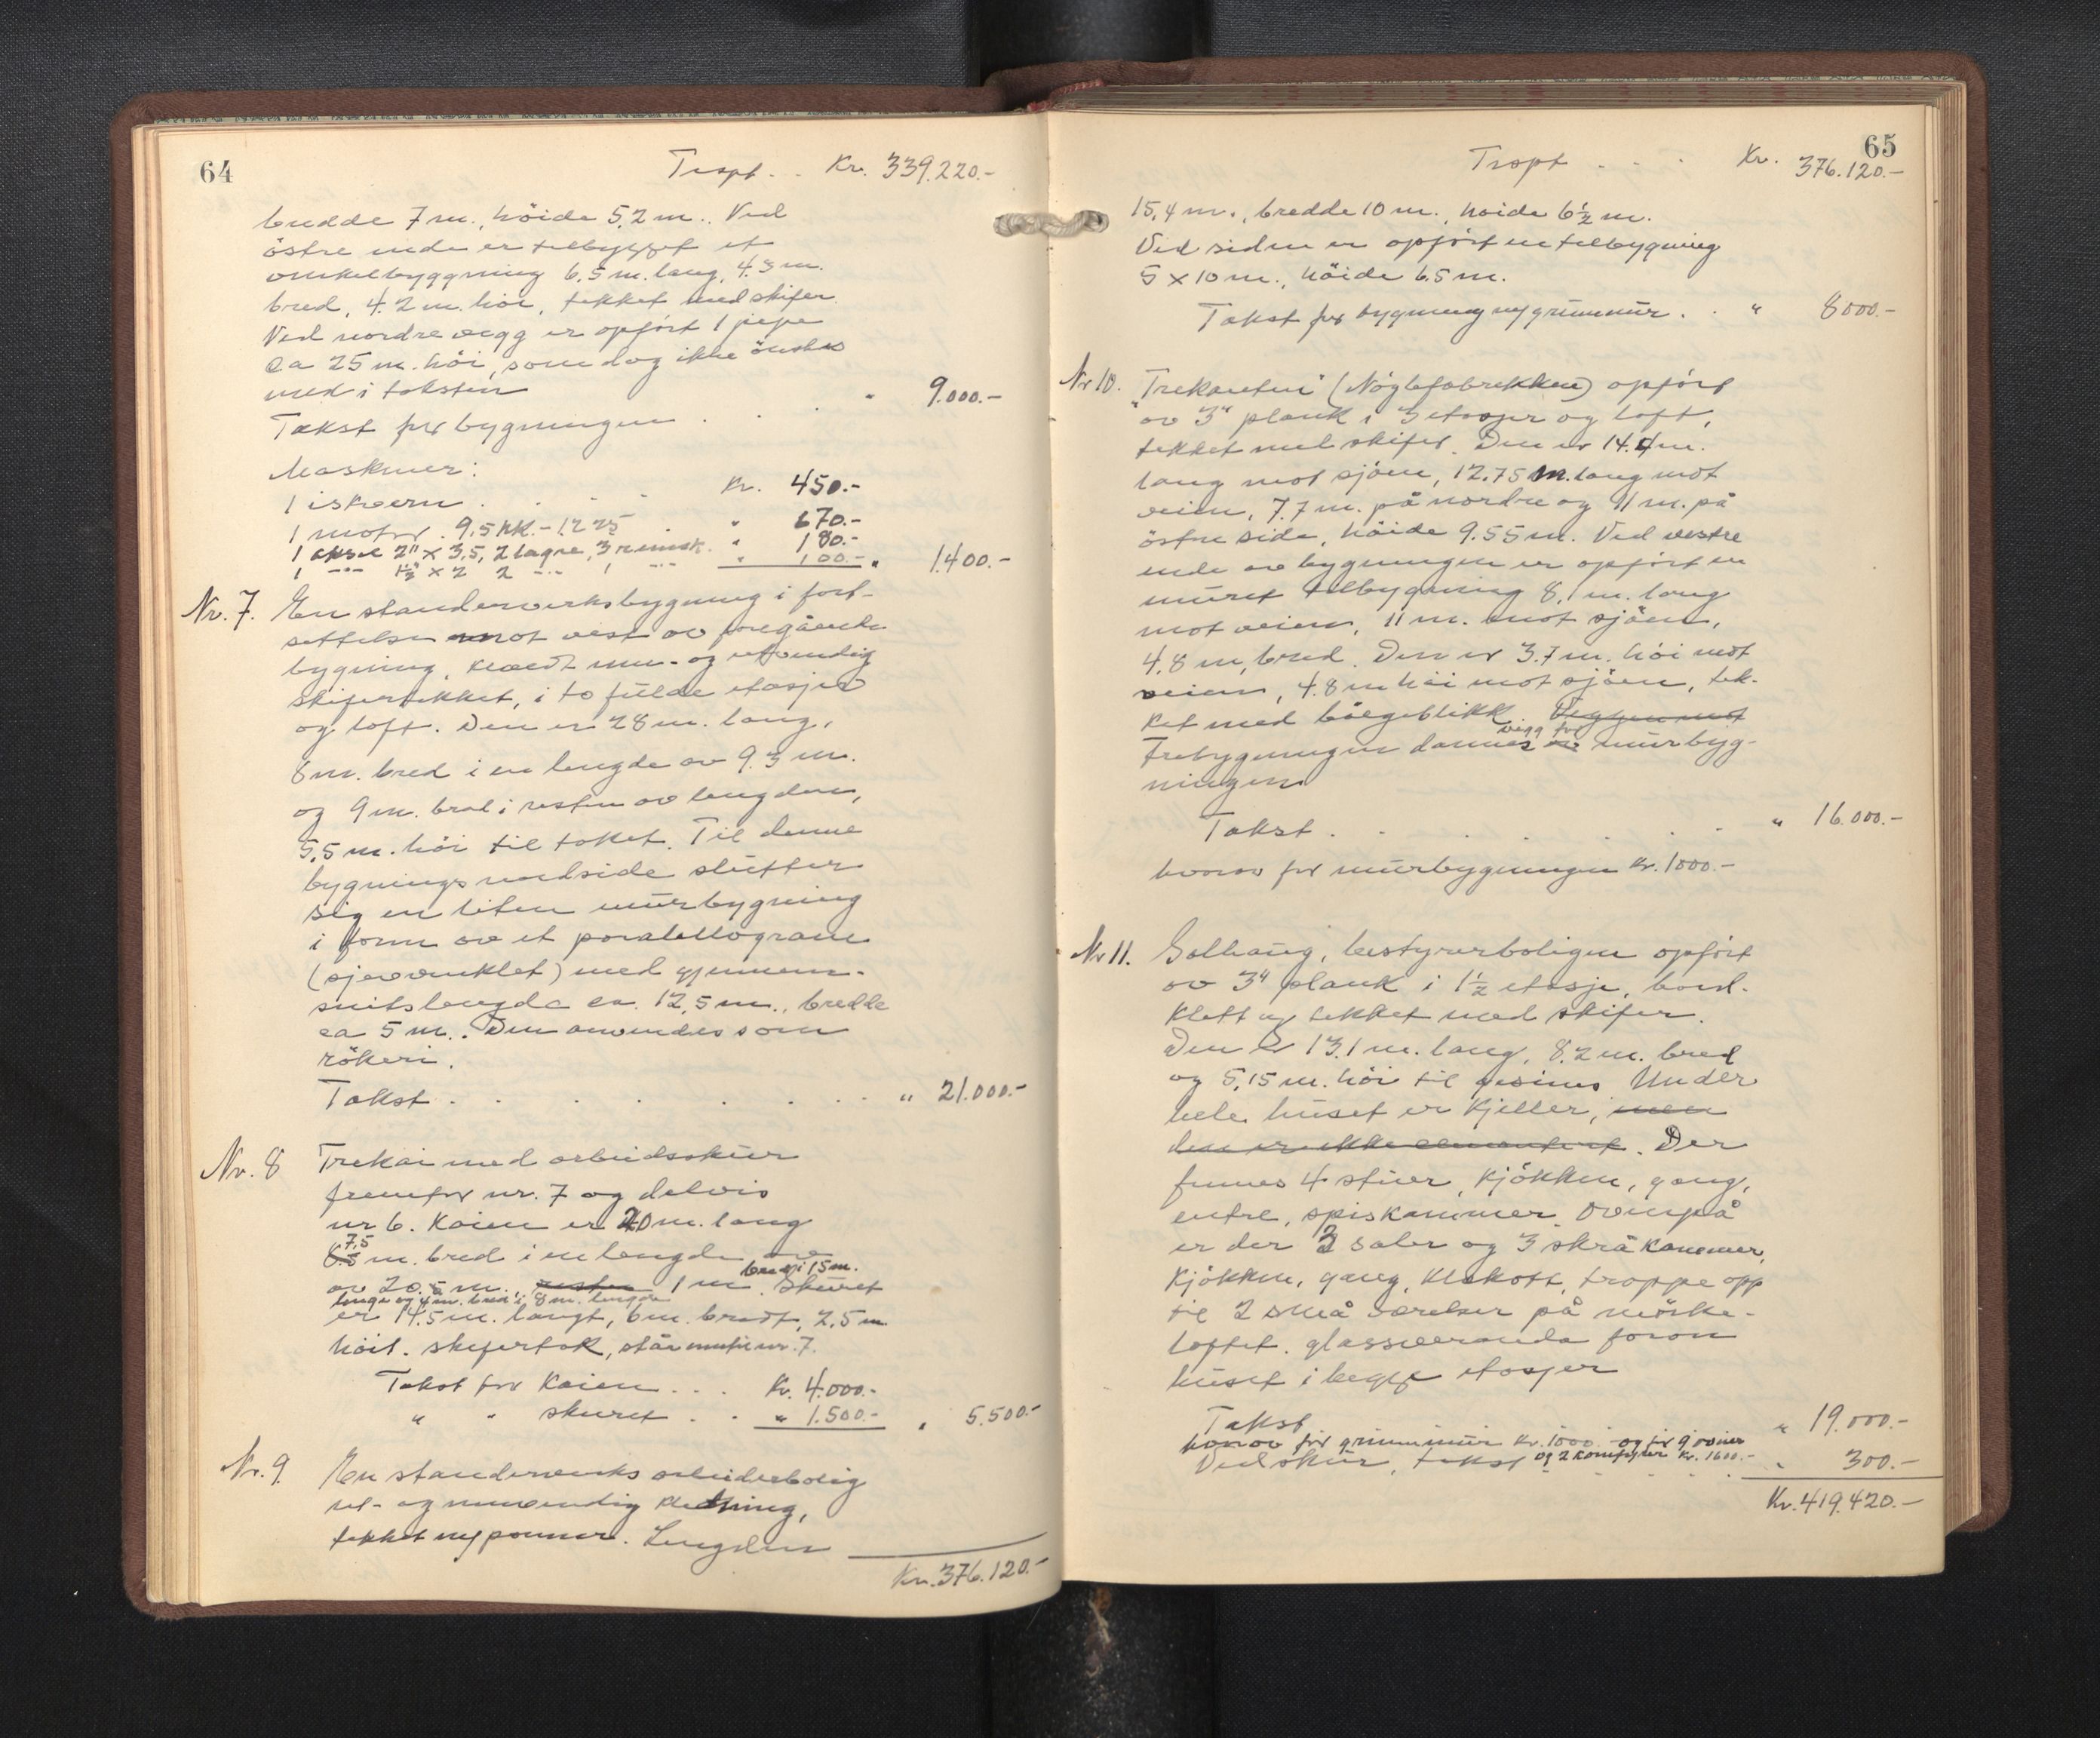 64
Trspt. . . Kr. 339.220.-
bredde 7 m., höide 5,2 m.. Ved
östre ende er tilbygget et
vinkelbyggning 6.5 m. lang, 4.3 m.
bred, 4.2 m. höi, tekket med skifer.
Ved nordre vegg er opført 1 pipe
ca 25 m. höi, som dog ikke önskes
med i taksten
Takst for bygningen . . . " 9.000.-
Maskiner:
1 iskvern . . . . Kr. 450.-
1 motor. 9,5 HK.- 1225 . " 670.-
1 aksel 2" x 3,5, 2 lagre, 3 remsk. " 180.-
1 -"- 1½ x 2 2 -"- 1 -"- " 100.- " 1400.-
Nr. 7. En standerverksbygning i fort-
settelse mot vest av foregående
bygning, klædt inn- og utvendig
skifertekket, i to fulde etasjer
og loft. Den er 28 m. lang,
8 m. bred i en lengde av 9.3 m.
og 9 m. bred i resten av lengden,
5,5 m. höi til taket. Til denne
bygnings nordside slutter
sig en liten murbygning
i form av et paralellogram
(sjevvinklet) med gjennem-
snitslengde ca. 12,5 m., bredde
ca 5 m.. Den anvendes som
rökeri.
Takst . . . . . . . . " 21.000.-
Nr. 8 Trekai med arbeidsskur
fremfor nr. 7 og delvis
nr 6. Kaien er 20 m. lang
7,5
6.5 m. bred i en lengde av
bred i 15 m.
av 20.5 m., resten 1 m. Skuret
lengde og 4 m. bred i 8 m. lengde
er 14.5 m. langt, 6 m. bredt, 2,5 m
höit. skifertak, står inntil nr. 7.
Takst for Kaien . . . Kr. 4.000.-
" " skuret . . " 1.500.- " 5.500.-
Nr. 9. En standerverks arbeiderbolig
ut- og innvendig kledning,
tekket m/panner. Lengden
Kr. 376.120.-
65
Trspt . . . Kr. 376.120.-
15,4 m., bredde 10 m., höide 6½ m.
Ved siden er opført en tilbygning
5 x 10 m., höide 6.5 m.
Takst for bygning m/grunnmur. . " 8000.-
Nr 10. "Trekanten" (Nöglefabrekken) opført
av 3" plank i 3 etasjer og loft,
tekket med skifer. Den er 14.4 m.
lang mot sjöen, 12.75 m. lang mot
veien, 7.7 m. på nordre og 11 m. på
östre side, höide 9.55 m. Ved vestre
ende av bygningen er opført en
muret tilbygning 8,1 m. lang
mot veien, 11 m. mot sjöen,
4,8 m, bred. Den er 3.7 m. höi mot
veien, 4.8 m höi mot sjöen, tek-
ket med bölgeblikk. Veggen mot
vegg for
Trebygningen dannes av murbyg-
ningen
Takst . . . . . . . " 16.000.-
hvorav for murbygningen Kr. 1000.-
Nr 11. Solhaug, bestyrerboligen opført
av 3" plank i 1½ etasje, bord-
klett og tekket med skifer.
Den er 13.1 m. lang, 8.2 m. bred
og 5,15 m. höi til gesims. Under
hele huset er kjeller, men
den er ikke cementert. Der
finnes 4 stuer, kjökken, gang,
entre, spiskammer. Ovenpå
er der 3 saler og 3 skråkammer,
kjökken, gang, kleskott, trappe opp
til 2 små værelser på mörke-
loftet. glassveranda foran
huset i begge etasjer
Takst " 19.000.-
hvorav for grunnmur Kr. 1000.- og for 9 ovner
og 2 komfyrer Kr. 1600.-
Vedskur, takst . . . . " 300.-
Kr. 419.420.-